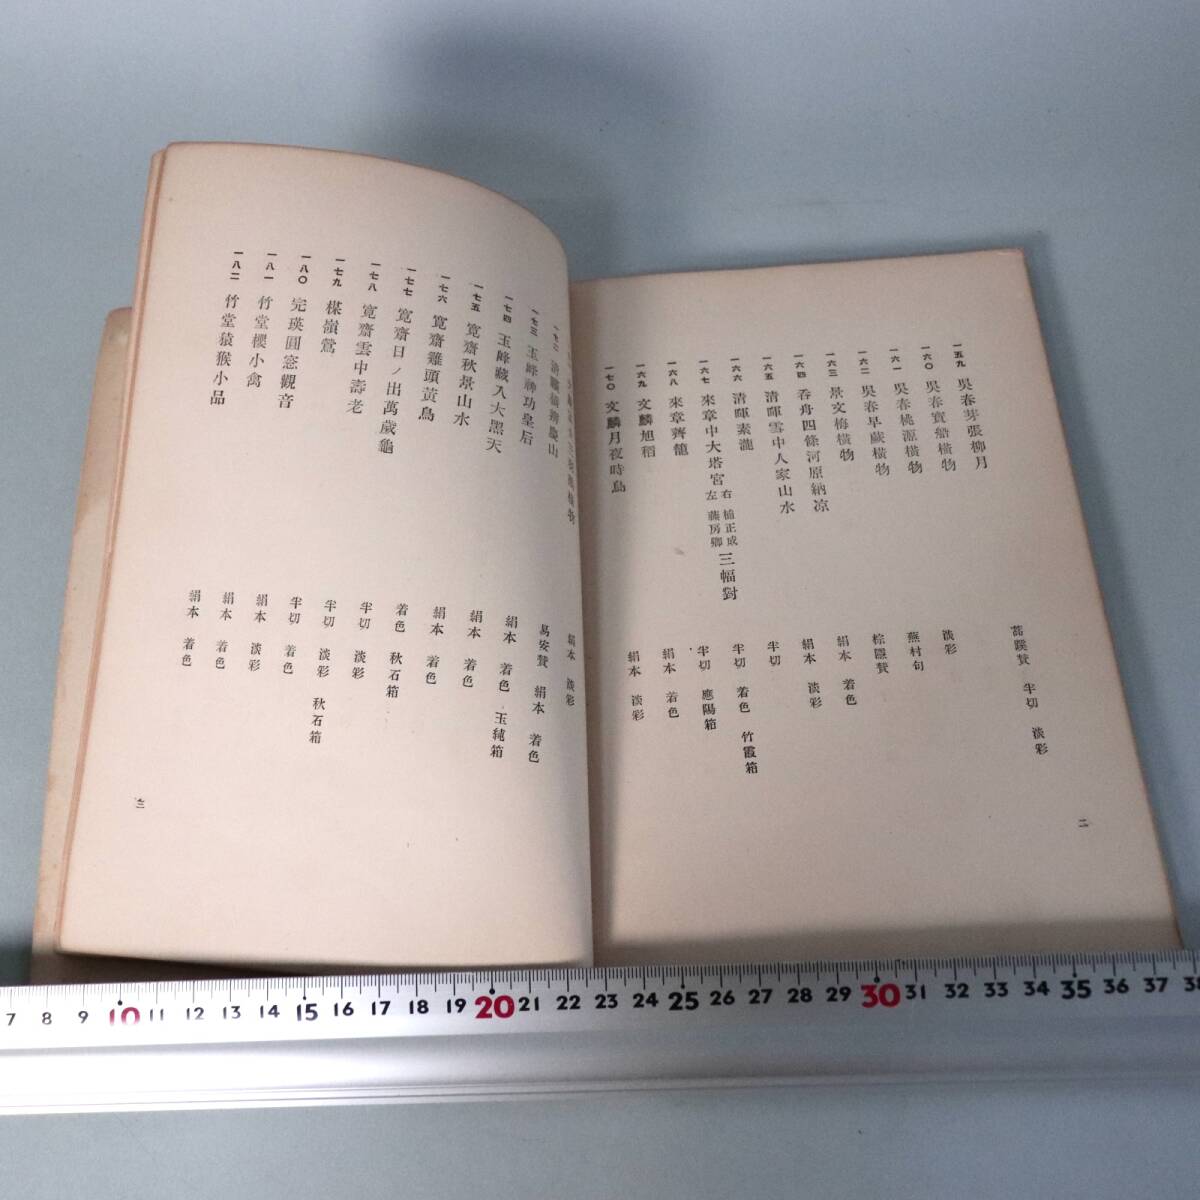 一五九 呉春芽張柳月 蕗蹊賛 半切 淡彩
一六〇 呉春寳船横物 淡彩
一六一 呉春桃源横物 蕪村句
一六二 呉春早蕨横物 棕隱賛
一六三 景文梅横物 絹本 着色
一六四 呑舟四條河原納凉 絹本 淡彩
一六五 清暉雪中人家山水 半切
一六六 清暉素瀧 半切 着色 竹霞箱
一六七 來章中大塔宮 右 楠正成 左 藤房卿 三幅對 半切 應陽箱
一六八 來章薺籠 絹本 着色
一六九 文麟旭稻 絹本 淡彩
一七〇 文麟月夜時鳥
二
一七二
絹本 淡彩
一七三 玉峰神功皇后 易安賛 絹本 着色
一七四 玉峰藏入大黑天 絹本 着色 玉純箱
一七五 寛齋秋景山水 絹本 着色
一七六 寛齋雞頭黃鳥 絹本 着色
一七七 寛齋日ノ出萬歳龜 着色 秋石箱
一七八 寛齋雲中壽老 半切 淡彩
一七九 楳嶺鶯 半切 淡彩 秋石箱
一八〇 完瑛圓窓觀音 半切 着色
一八一 竹堂櫻小禽 絹本 淡彩
一八二 竹堂猿猴小品 絹本 着色
絹本 着色
三
7 8 9 10 11 12 13 14 15 16 17 18 19 20 21 22 23 24 25 26 27 28 29 30 31 32 33 34 35 36 37 38